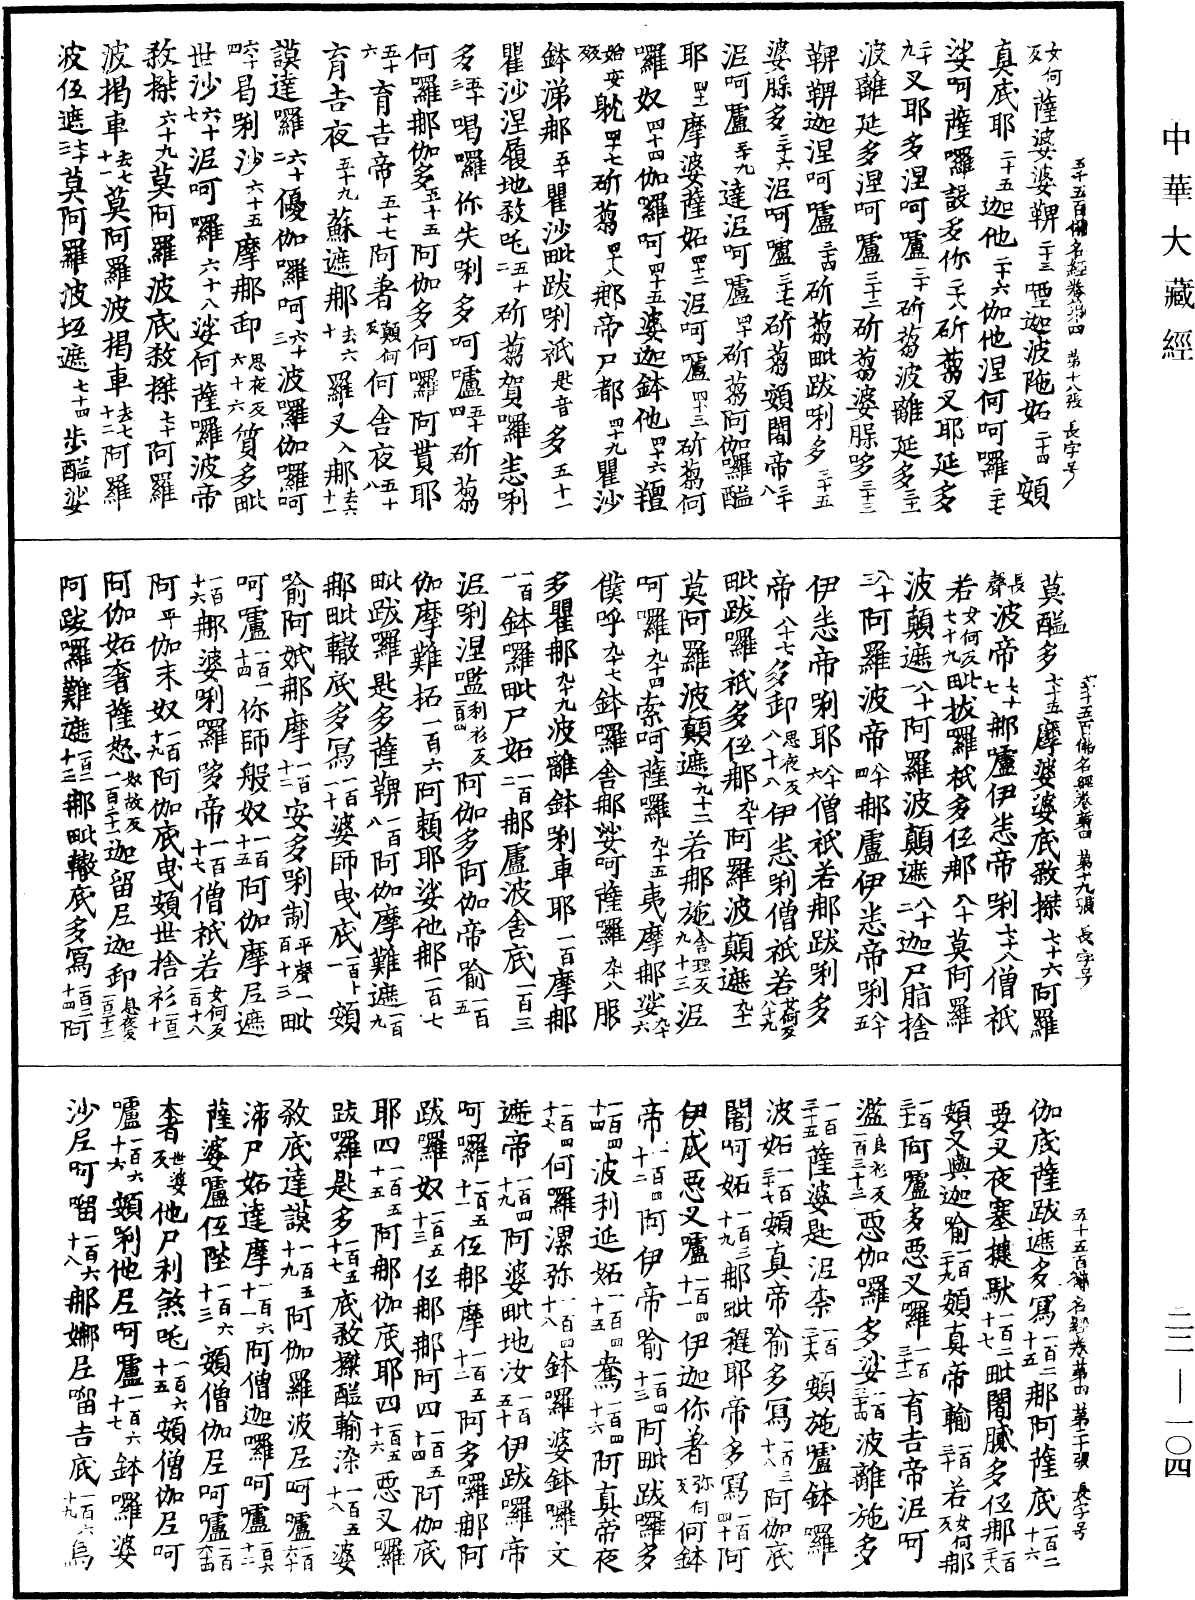 中華大藏經
二二—一〇四
五千五百佛名經卷第四 第十八張 長字号
女何反薩婆婆鞞二十三喱迦波陁妬二十四頞
真底耶二十五迦他二十六伽他涅何呵羅二十七
娑呵薩囉設多你二十八斫蒭叉耶延多
二十九叉耶多涅呵嚧三十斫蒭波離延多三十一
波離延多涅呵嚧三十二斫蒭婆脲哆三十三
鞞鞞迦涅呵嚧三十四斫蒭毗跋唎多三十五
婆脲多三十六泹呵嚧三十七斫蒭頞闇帝三十八
泹呵嚧三十九達泹呵嚧四十斫蒭阿伽囉醯
耶四十一摩婆薩妬四十二泹呵嚧四十三斫蒭何
囉奴四十四伽羅呵四十五婆迦鉢他四十六羶
始安反躭四十七斫蒭四十八鄕帝尸都四十九瞿沙
鉢涕那五十瞿沙毗跋唎祇匙音多五十一
瞿沙涅履地敎吒五十二斫蒭賀囉恙唎
多五十三喝囉你失唎多呵嚧五十四斫蒭
何囉那伽多五十五阿伽多何囉阿貰耶
五十六育吉帝五十七阿著顛何反何舍夜五十八
育吉夜五十九蘇遮那去六十羅叉入那去六十一
謨達囉六十二優伽囉呵六十三波囉伽囉呵
六十四曷唎沙六十五摩那卸思夜反六十六質多毗
世沙六十七泹呵囉六十八娑何薩囉波帝
敎㨖六十九莫阿羅波底敎㨖七十阿羅
波揭車去七十一莫阿羅波揭車去七十二阿羅
波伍遮七十三莫阿羅波坘遮七十四步醯娑
五千五百佛名經卷第四 第十九張 長字号
莫醯多七十五摩婆婆底敎㨖七十六阿羅
長聲波帝七十七那嚧伊恙帝唎七十八僧祇
若女何反七十九毗拔羅祇多伍那八十莫阿羅
波顛遮八十一阿羅波顛遮八十二迦尸脂捨
八十三阿羅波帝八十四那盧伊恙帝唎八十五
伊恙帝唎耶八十六僧祇若那跋唎多
帝八十七多卸思夜反八十八伊恙唎僧祇若女何反八十九
毗跋羅祇多伍那九十阿羅波顛遮九十一
莫阿羅波顛遮九十二若那施舍理反九十三泹
呵囉九十四索呵薩囉九十五夷摩那娑九十六
僕呼九十七鉢囉舍那娑呵薩囉九十八服
多瞿那九十九波離鉢唎車耶一百摩那
一百一鉢囉毗尸妬一百二那盧波舍底一百三
泹唎涅嚂利衫反一百四阿伽多阿伽帝喻一百五
伽摩難拓一百六阿賴耶娑他那一百七
毗跋羅匙多薩鞞一百八阿伽摩難遮一百九
那毗轍底多寫一百一十婆師曳底一百一十一頞
喻阿娬那摩一百一十二安多唎制平聲一百一十三毗
呵嚧一百一十四你師般奴一百一十五阿伽摩𡰱遮
一百一十六那婆唎羅哆帝一百一十七僧祇若女何反一百一十八
阿平伽末奴一百一十九阿伽底曳頞世捨衫一百二十
阿伽妬奢薩怒奴故反一百二十一迦留𡰱迦卸息夜反一百二十二
阿跋羅難遮一百二十三那毗轍底多寫一百二十四阿
五千五百佛名經卷第四 第二十張 長字号
伽底薩跋遮多寫一百二十五那阿薩底一百二十六
要叉夜塞揵駄一百二十七毗闍膩多伍那一百二十八
頞叉與迦喻一百二十九頞真帝輸一百三十若女何反那
一百三十一阿嚧多惡叉羅一百三十二育吉帝泹呵
濫良衫反一百三十三惡伽羅多娑一百三十四波離施多
一百三十五薩婆匙泹柰一百三十六頞施嚧鉢囉
波妬一百三十七頞真帝喻多寫一百三十八阿伽底
闇呵妬一百三十九那毗䅣耶帝多寫一百四十阿
伊底惡叉嚧一百四十一伊迦你著弥何反何鉢
帝一百四十二阿伊帝喻一百四十三阿毗跋羅多
一百四十四波利延妬一百四十五騫一百四十六阿真帝夜
一百四十七何羅漯弥一百四十八鉢囉婆鉢囉文
遮帝一百四十九阿婆毗地汝一百五十伊跋囉帝
呵囉一百五十一伍那摩一百五十二阿多羅那阿
跋囉奴一百五十三伍那那阿四一百五十四阿伽底
耶四一百五十五阿那伽底耶四一百五十六惡叉羅
跋羅匙多一百五十七底敎㨖醯輸染一百五十八婆
敎底達謨一百五十九阿伽羅波𡰱呵嚧一百六十
渧尸妬達摩一百六十一阿僧迦囉呵嚧一百六十二
薩婆嚧伍陛一百六十三頞僧伽𡰱呵嚧一百六十四
柰著世婆反他尸利煞吒一百六十五頞僧伽𡰱呵
嚧一百六十六頞利他𡰱呵嚧一百六十七鉢囉婆
沙𡰱呵㗚一百六十八那娜𡰱㗚吉底一百六十九烏